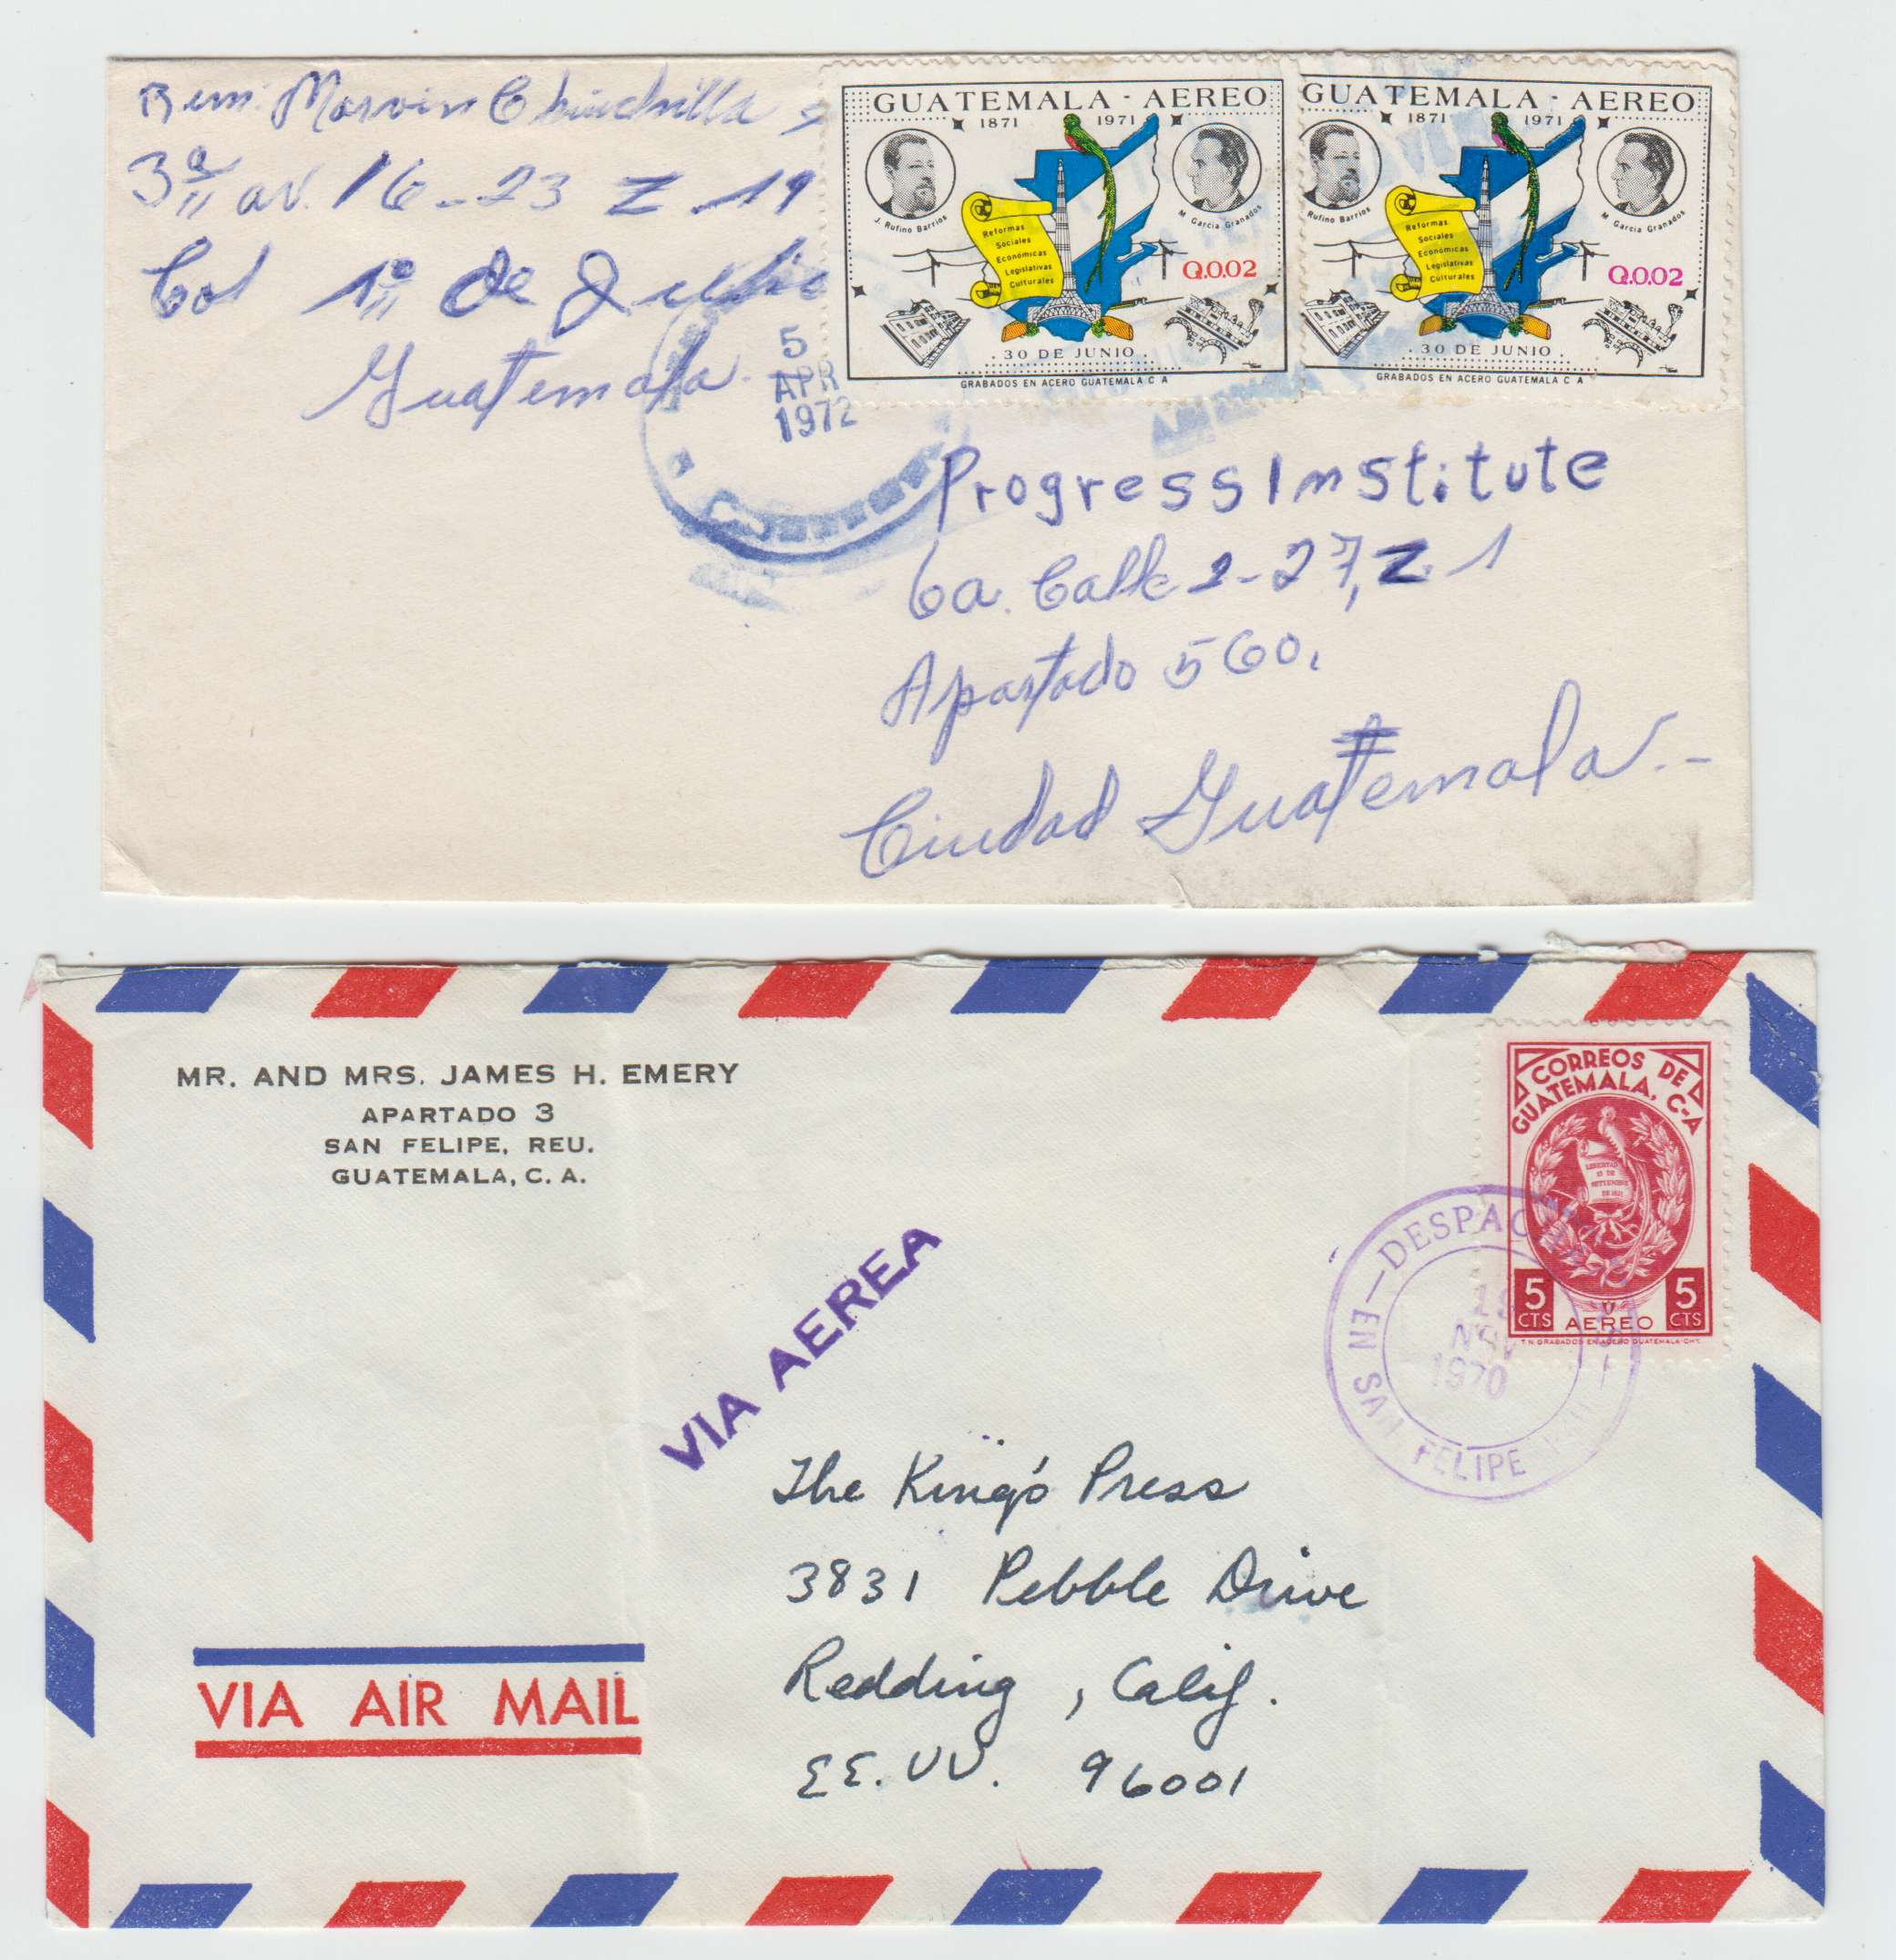 Rem. Marvin Chinchilla S
3ª av. 16-23 Z 19
Col 1º de Julio
Guatemala.
GUATEMALA - AEREO
1871 1971
J. Rufino Barrios
M García Granados
Reformas
Sociales
Económicas
Legislativas
Culturales
Q.0.02
30 DE JUNIO
GRABADOS EN ACERO GUATEMALA C A
GUATEMALA - AEREO
1871 1971
Rufino Barrios
M García Granados
Reformas
Sociales
Económicas
Legislativas
Culturales
Q.0.02
30 DE JUNIO
GRABADOS EN ACERO GUATEMALA C A
5
APR
1972
Progress Institute
6a. Calle 2-27, Z. 1
Apartado 560.
Ciudad Guatemala.-
MR. AND MRS. JAMES H. EMERY
APARTADO 3
SAN FELIPE, REU.
GUATEMALA, C. A.
CORREOS DE
GUATEMALA, C-A
LIBERTAD
15 DE
SETIEMBRE
DE 1821
5 CTS AEREO 5 CTS
T.N. GRABADOS EN ACERO GUATEMALA
DESPACHO
NOV
1970
EN SAN FELIPE
VIA AEREA
The King's Press
3831 Pebble Drive
Redding, Calif.
EE.UU. 96001
VIA AIR MAIL